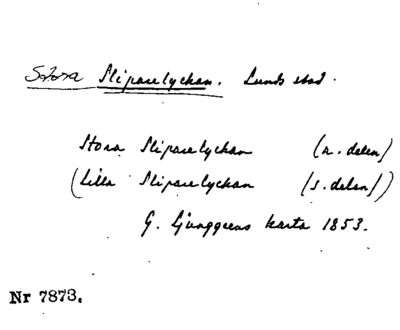 Stora Sliparelyckan. Lunds stad.
Stora Sliparelyckan (n. delen)
(Lilla Sliparelyckan (s. delen))
G. Ljunggrens karta 1853.
Nr 7873.